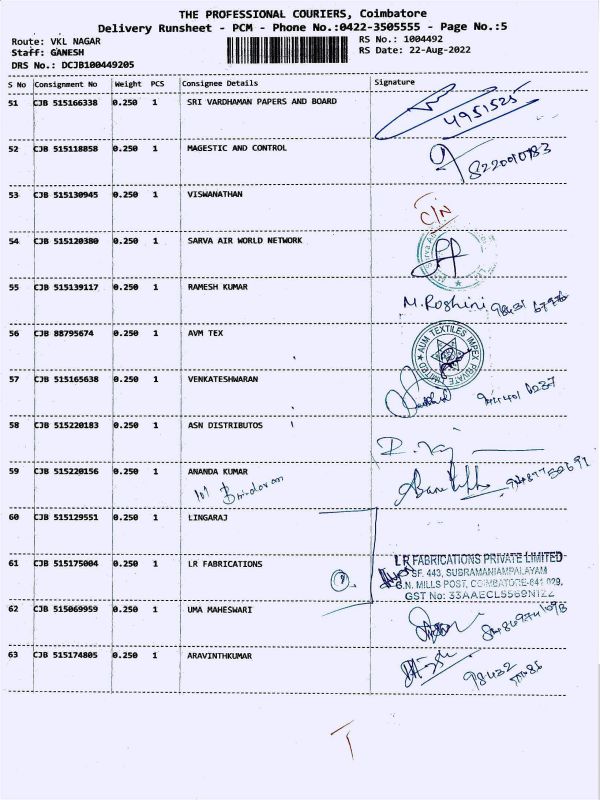 THE PROFESSIONAL COURIERS, Coimbatore
Delivery Runsheet - PCM - Phone No.:0422-3505555 - Page No.:5
Route: VKL NAGAR RS No.: 1004492
Staff: GANESH RS Date: 22-Aug-2022
DRS No.: DCJB100449205
S No Consignment No Weight PCS Consignee Details Signature
51 CJB 515166338 0.250 1 SRI VARDHAMAN PAPERS AND BOARD
4951525
52 CJB 515118858 0.250 1 MAGESTIC AND CONTROL
53 CJB 515130945 0.250 1 VISWANATHAN
C/N
54 CJB 515120380 0.250 1 SARVA AIR WORLD NETWORK
55 CJB 515139117 0.250 1 RAMESH KUMAR
M.Roshini
56 CJB 88795674 0.250 1 AVM TEX
AUM TEXTILES IMPEX PRIVATE LIMITED
57 CJB 515165638 0.250 1 VENKATESHWARAN
58 CJB 515220183 0.250 1 ASN DISTRIBUTOS
59 CJB 515220156 0.250 1 ANANDA KUMAR
60 CJB 515129551 0.250 1 LINGARAJ
61 CJB 515175004 0.250 1 LR FABRICATIONS
LR FABRICATIONS PRIVATE LIMITED
SF. 443, SUBRAMANIAMPALAYAM
G.N. MILLS POST, COIMBATORE-641 029.
GST No: 33AAECL5569N1ZZ
62 CJB 515069959 0.250 1 UMA MAHESWARI
63 CJB 515174805 0.250 1 ARAVINTHKUMAR